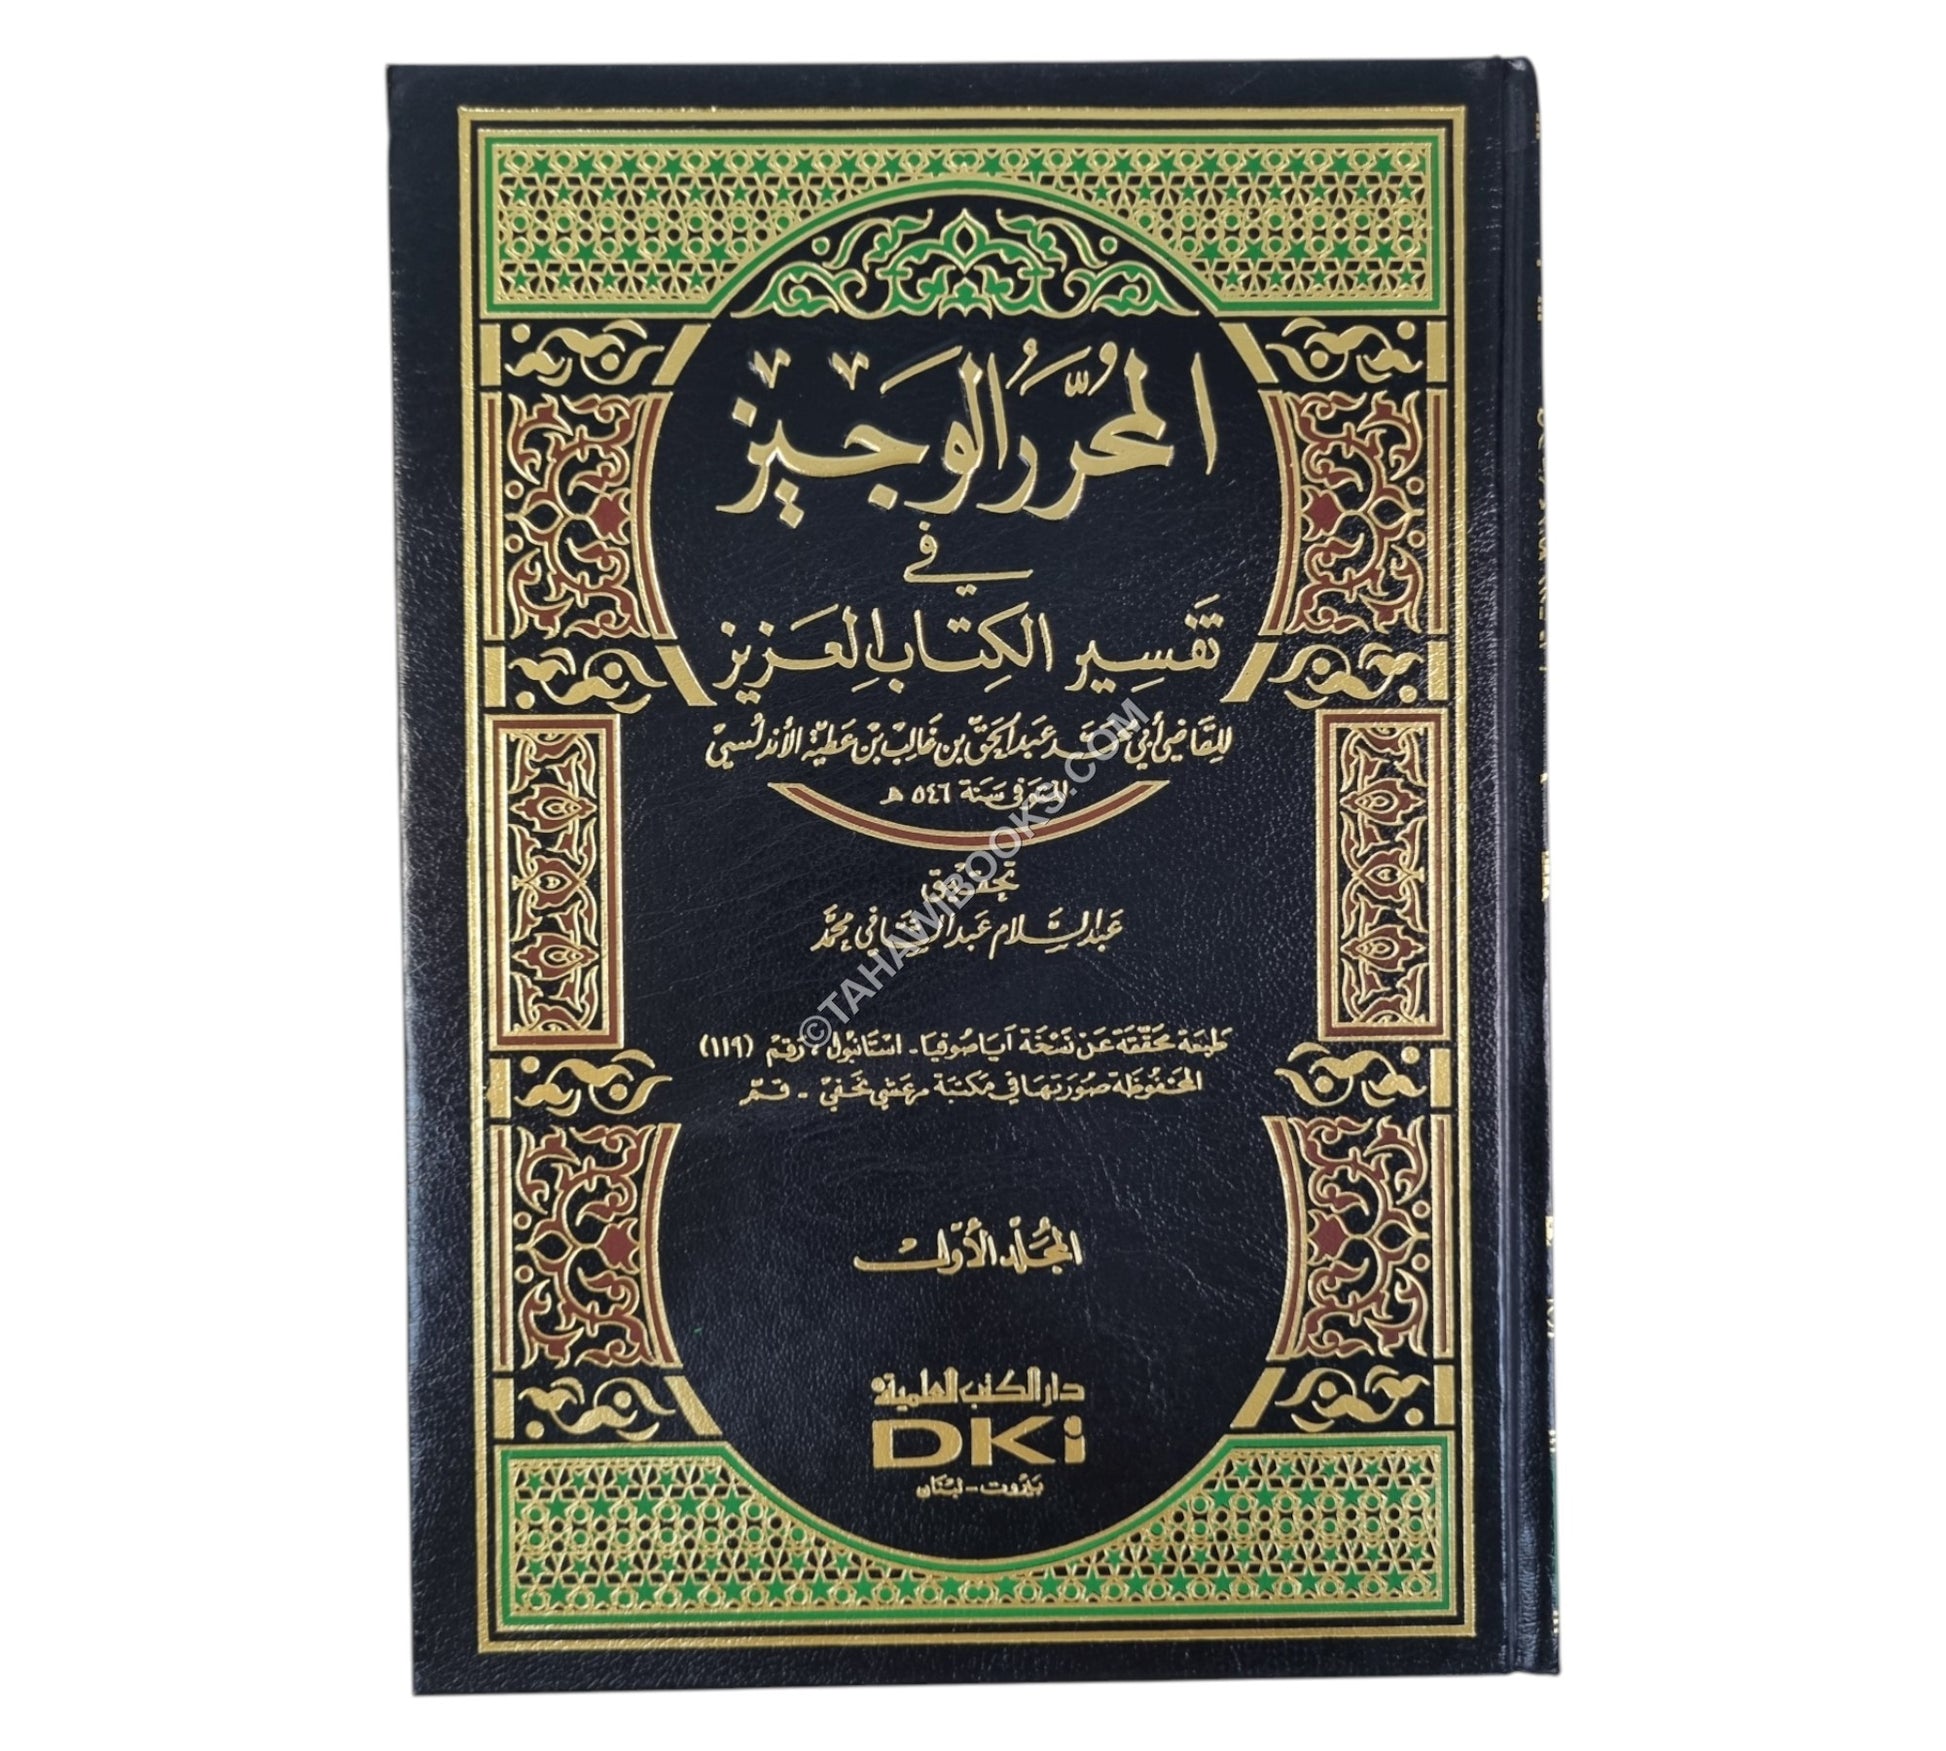 المُحَرَّرُ الوَجِيز
في
تَفسِير الكِتَابِ العَزِيز
للقَاضِي أبي محمَّد عَبد الحَقّ بن غَالِب بْن عَطيّة الأندلسيّ
المتوفى سَنة ٥٤٦ هـ
تحقيق
عَبد السَّلام عَبد الشَّافي محمَّد
طبعَة محقّقة عَن نسْخَة آيَا صُوفيَا - اسْتَانبُول، رَقم (١١٩)
المحفُوظَة صُورَتهَا في مَكتبَة مرعَشي نجَفيّ - قمّ
المجَلّد الأوّل
دار الكتب العلمية
DKi
بَيْرُوت - لبْنَان
©TAHAWIBOOKS.COM